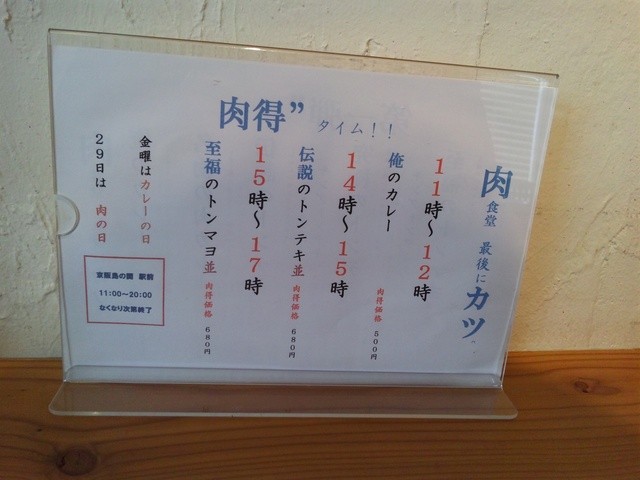 肉食堂 最後にカツ
肉得”タイム！！
11時〜12時
俺のカレー 肉得価格 500円
14時〜15時
伝説のトンテキ並 肉得価格 680円
15時〜17時
至福のトンマヨ並 肉得価格 680円
金曜はカレーの日
29日は 肉の日
京阪島の関 駅前
11:00〜20:00
なくなり次第終了